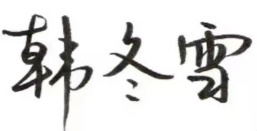 韩冬雪